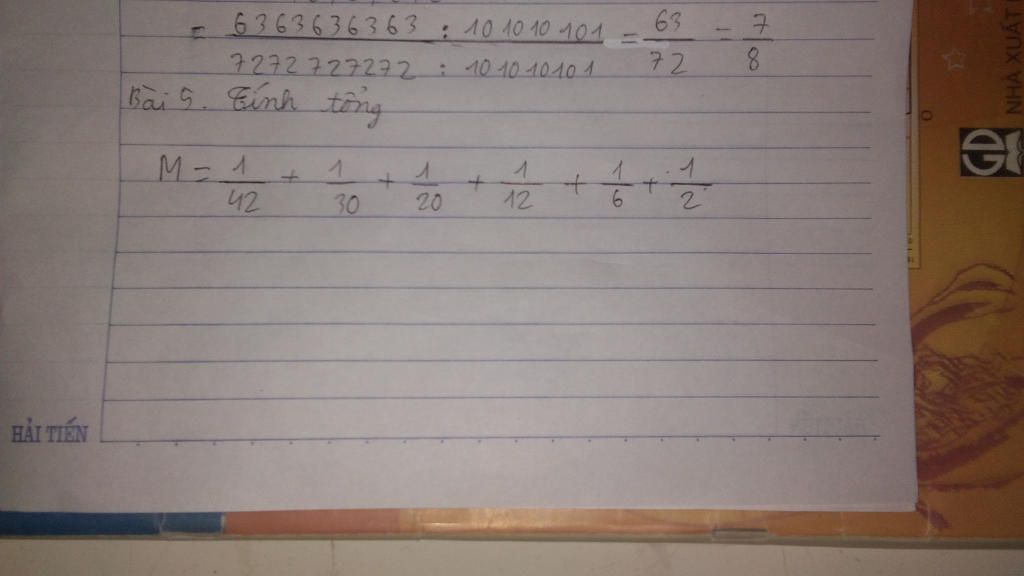 = 6363636363 : 101010101 / 7272727272 : 101010101 = 63/72 = 7/8
Bài 5. Tính tổng
M = 1/42 + 1/30 + 1/20 + 1/12 + 1/6 + 1/2
HẢI TIẾN
NHÀ XUẤT
GD